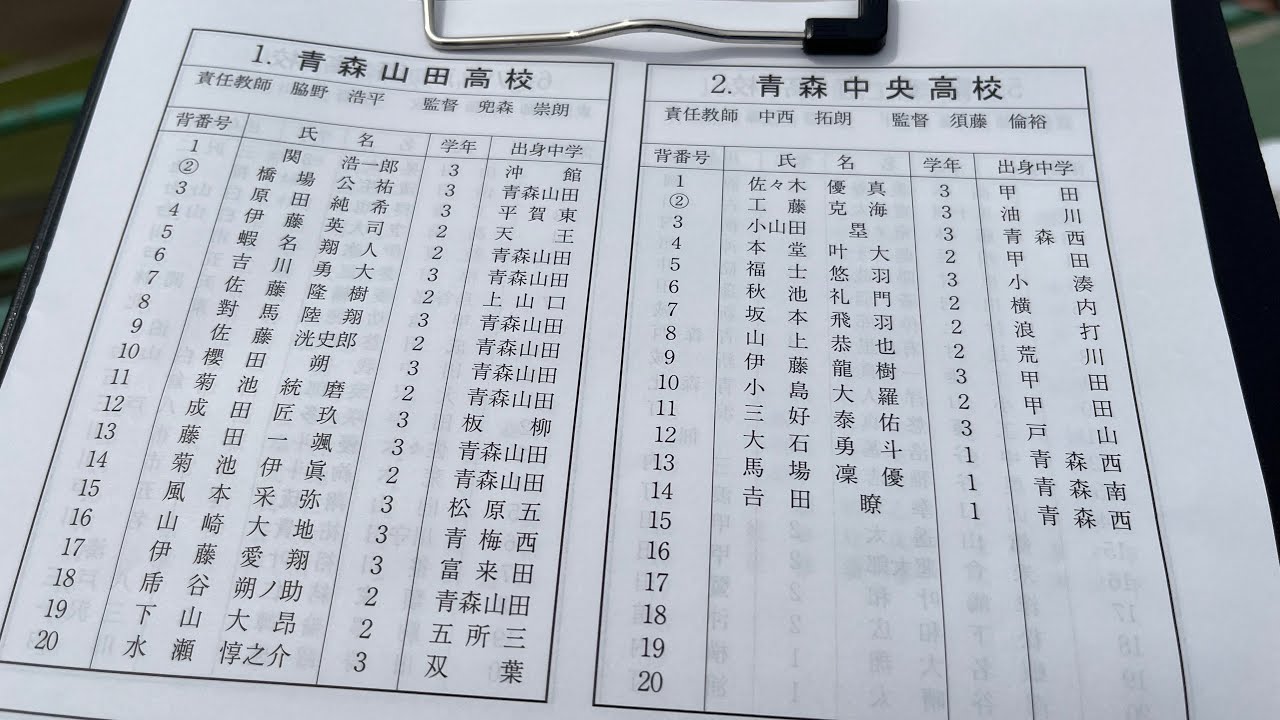 1. 青森山田高校
責任教師 脇野 浩平 監督 兜森 崇朗
背番号 氏名 学年 出身中学
1 関 浩一郎 3 沖館
② 橋場 公祐 3 青森山田
3 原田 純希 3 平賀東
4 伊藤 英司 2 天王
5 蝦名 翔人 2 青森山田
6 吉川 勇大 3 青森山田
7 佐藤 隆樹 2 上山口
8 對馬 陸翔 3 青森山田
9 佐藤 洸史郎 2 青森山田
10 櫻田 朔 3 青森山田
11 菊池 統磨 2 青森山田
12 成田 匠玖 3 板柳
13 藤田 一颯 3 青森山田
14 菊池 伊眞 2 青森山田
15 風本 采弥 3 松原五
16 山崎 大地 3 青梅西
17 伊藤 愛翔 3 富来田
18 乕谷 朔ノ助 2 青森山田
19 下山 大昂 2 五所三
20 水瀬 惇之介 3 双葉
2. 青森中央高校
責任教師 中西 拓朗 監督 須藤 倫裕
背番号 氏名 学年 出身中学
1 佐々木 優真 3 甲田
② 工藤 克海 3 油川
3 小山田 塁 3 青森西
4 本堂 叶大 2 甲田
5 福士 悠羽 3 小湊
6 秋池 礼門 2 横内
7 坂本 飛羽 2 浪打
8 山上 恭也 2 荒川
9 伊藤 龍樹 3 甲田
10 小島 大羅 2 甲田
11 三好 泰佑 3 戸山
12 大石 勇斗 1 青森西
13 馬場 凜優 1 青森南
14 𠮷田 瞭 1 青森西
15
16
17
18
19
20